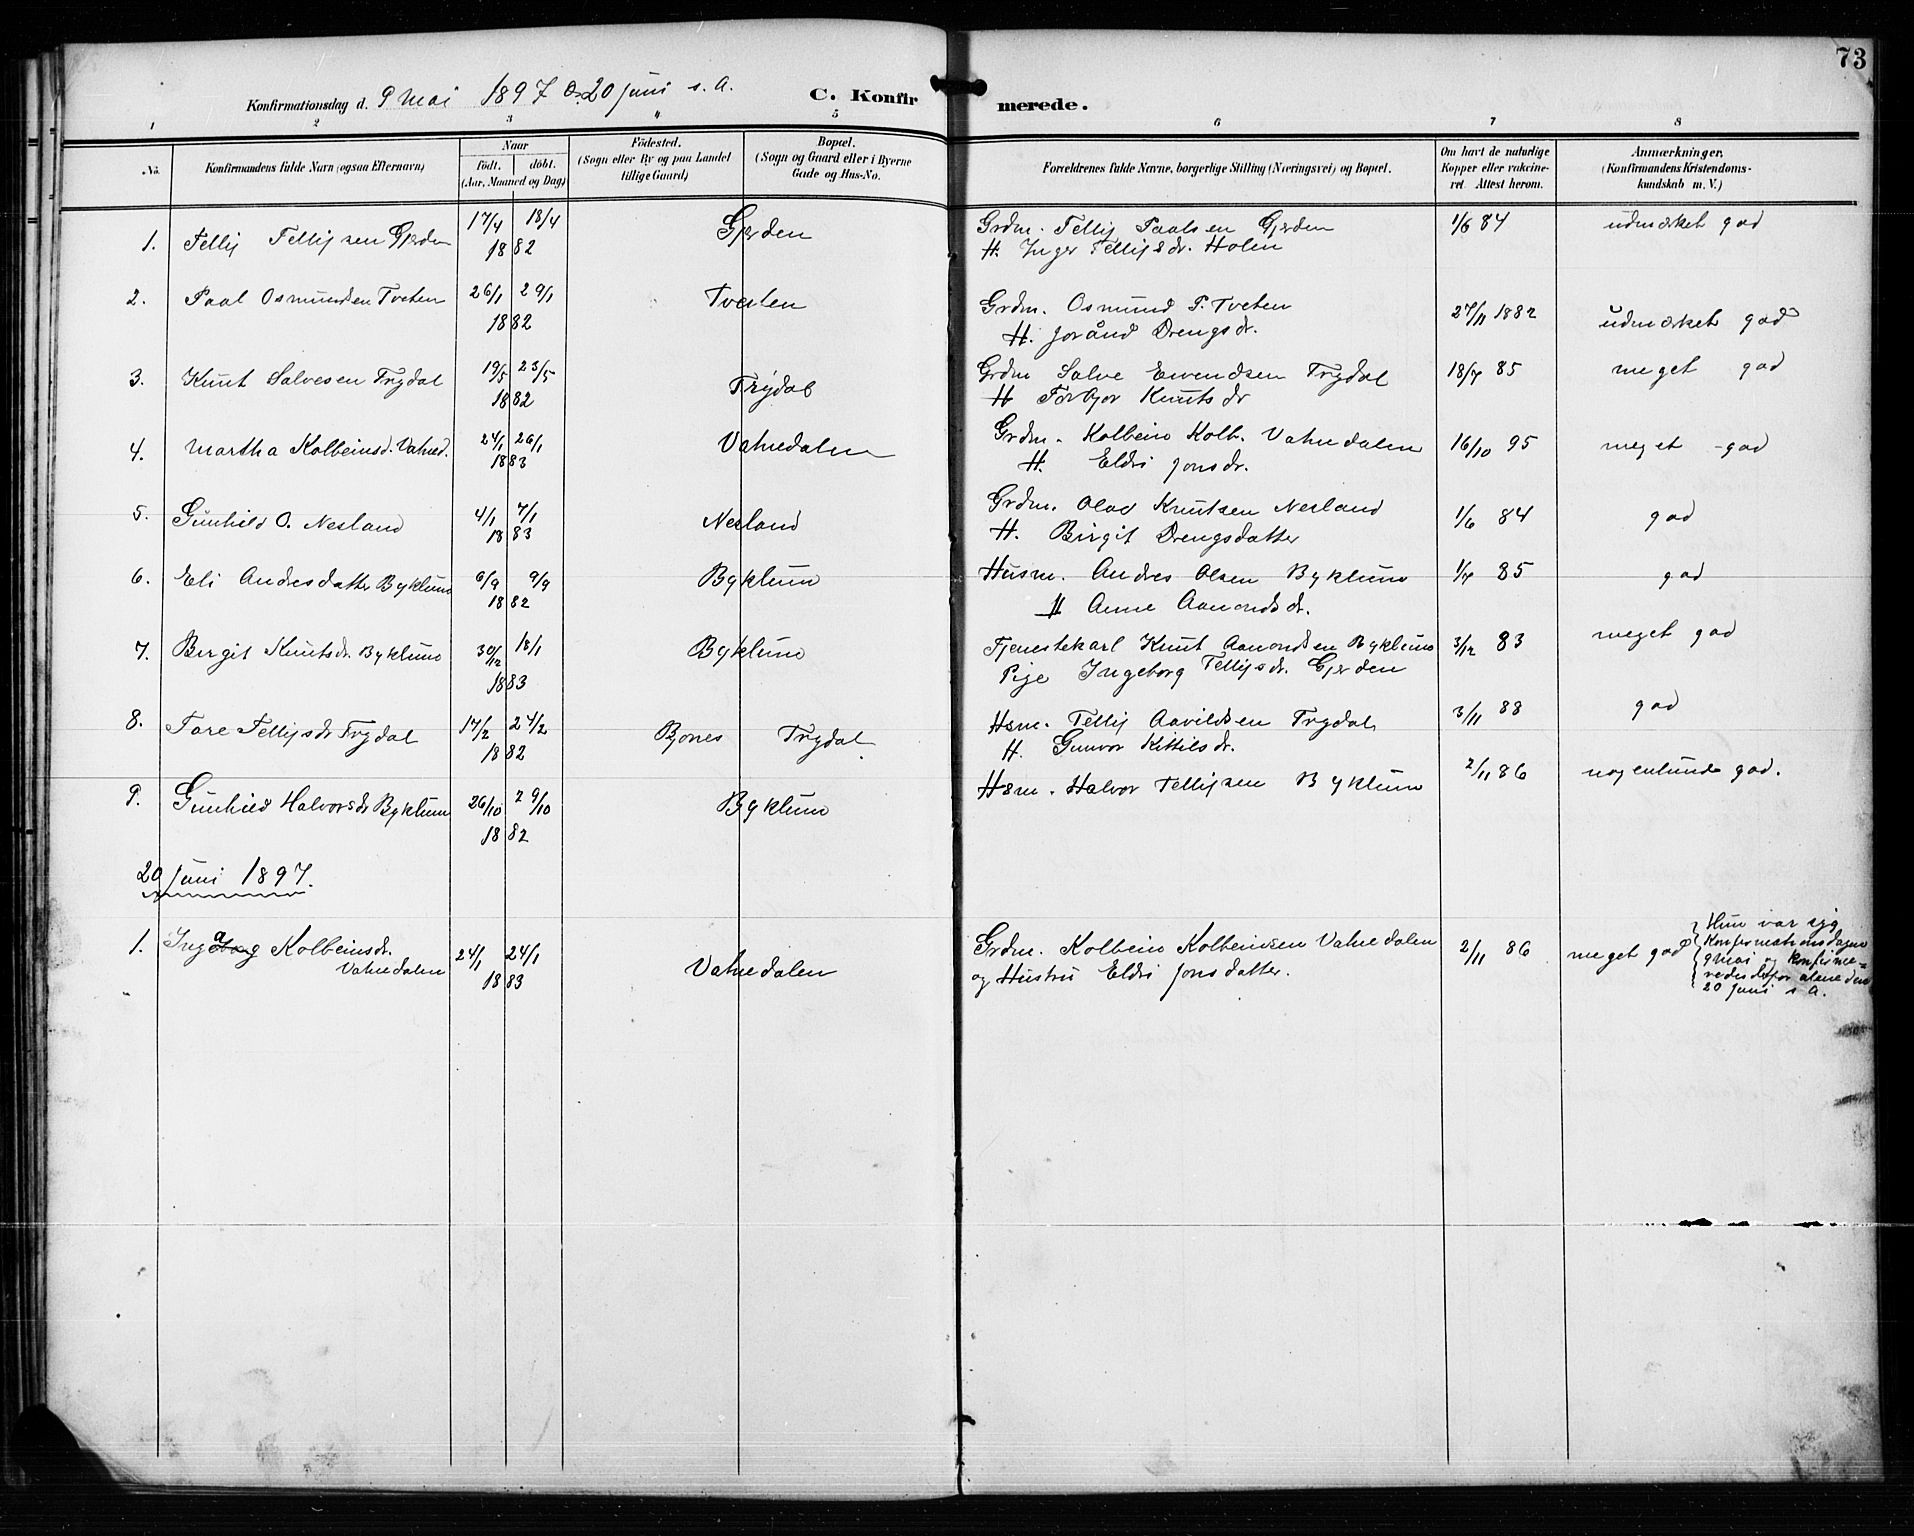 73
Konfirmationsdag d. 9 Mai 1897 & 20 Juni s. A. C. Konfirmerede.
1 2 3 4 5 6 7 8
No. Konfirmandens fulde Navn (ogsaa Efternavn) Naar födt. döbt. (Aar, Maaned og Dag) Födested. (Sogn eller By og paa Landet tillige Gaard) Bopæl. (Sogn og Gaard eller i Byerne Gade og Hus-No. Forældrenes fulde Navne, borgerlige Stilling (Næringsvei) og Bopæl. Om havt de naturlige Kopper eller vakcineret. Attest herom. Anmærkninger. (Konfirmandens Kristendomskundskab m. V.)
1. Tellij Tellijsen Gjerden 17/4 18/4 1882 Gjerden Grdm. Tellij Paalsen Gjerden 1/6 84 udmærket god
H. Inger Tellijsdr. Holen
2. Paal Osmundsen Tveten 26/1 29/1 1882 Tveiten Grdm. Osmund P. Tveten 27/11 1882 udmærket god
H. Joränd Drengsdr.
3. Knut Salvesen Trydal 19/5 23/5 1882 Trydal Grdm Salve Eivendsen Trydal 18/7 85 meget god
H Torbjor Knutsdr
4. Martha Kolbeinsd. Vatned. 24/1 26/1 1883 Vatnedalen Grdm. Kolbein Kolb. Vatnedalen 16/10 95 meget god
H. Eldri Jonsdr.
5. Gunhild O. Nesland 4/1 7/1 1883 Nesland Grdm. Olav Knutsen Nesland 1/6 84 god
H. Birgit Drengsdatter
6. Eli Andresdatter Byklum 6/9 9/9 1882 Byklum Husm. Andres Olsen Byklum 1/7 85 god
H Anne Aamondsdr.
7. Birgit Knutsdr. Byklum 30/12 18/1 1883 Byklum Tjenestekarl Knut Aamondsen Byklum 3/12 83 meget god
Pige Ingeborg Tellijsdr. Gjerden
8. Tore Tellijsdr Trydal 17/2 24/2 1882 Bjones Trydal Hsm. Tellij Aavildsen Trydal 3/11 88 god
H. Gunvor Kittilsdr.
9. Gunhild Halvorsdr Byklum 26/10 29/10 1882 Byklum Hsm. Halvor Tellijsen Byklum 2/11 86 nogenlunde god.
20 Juni 1897.
1. Inga Kolbeinsdr. Vatnedalen 24/1 24/1 1883 Vatnedalen Grdm. Kolbein Kolbeinsen Vatnedalen 2/11 86 meget god
og Hustru Eldri Jonsdatter.
Hun var syg
Konfirmationsdagen
9 Mai og konfirme=
redes derfor alene den
20 Juni s A.